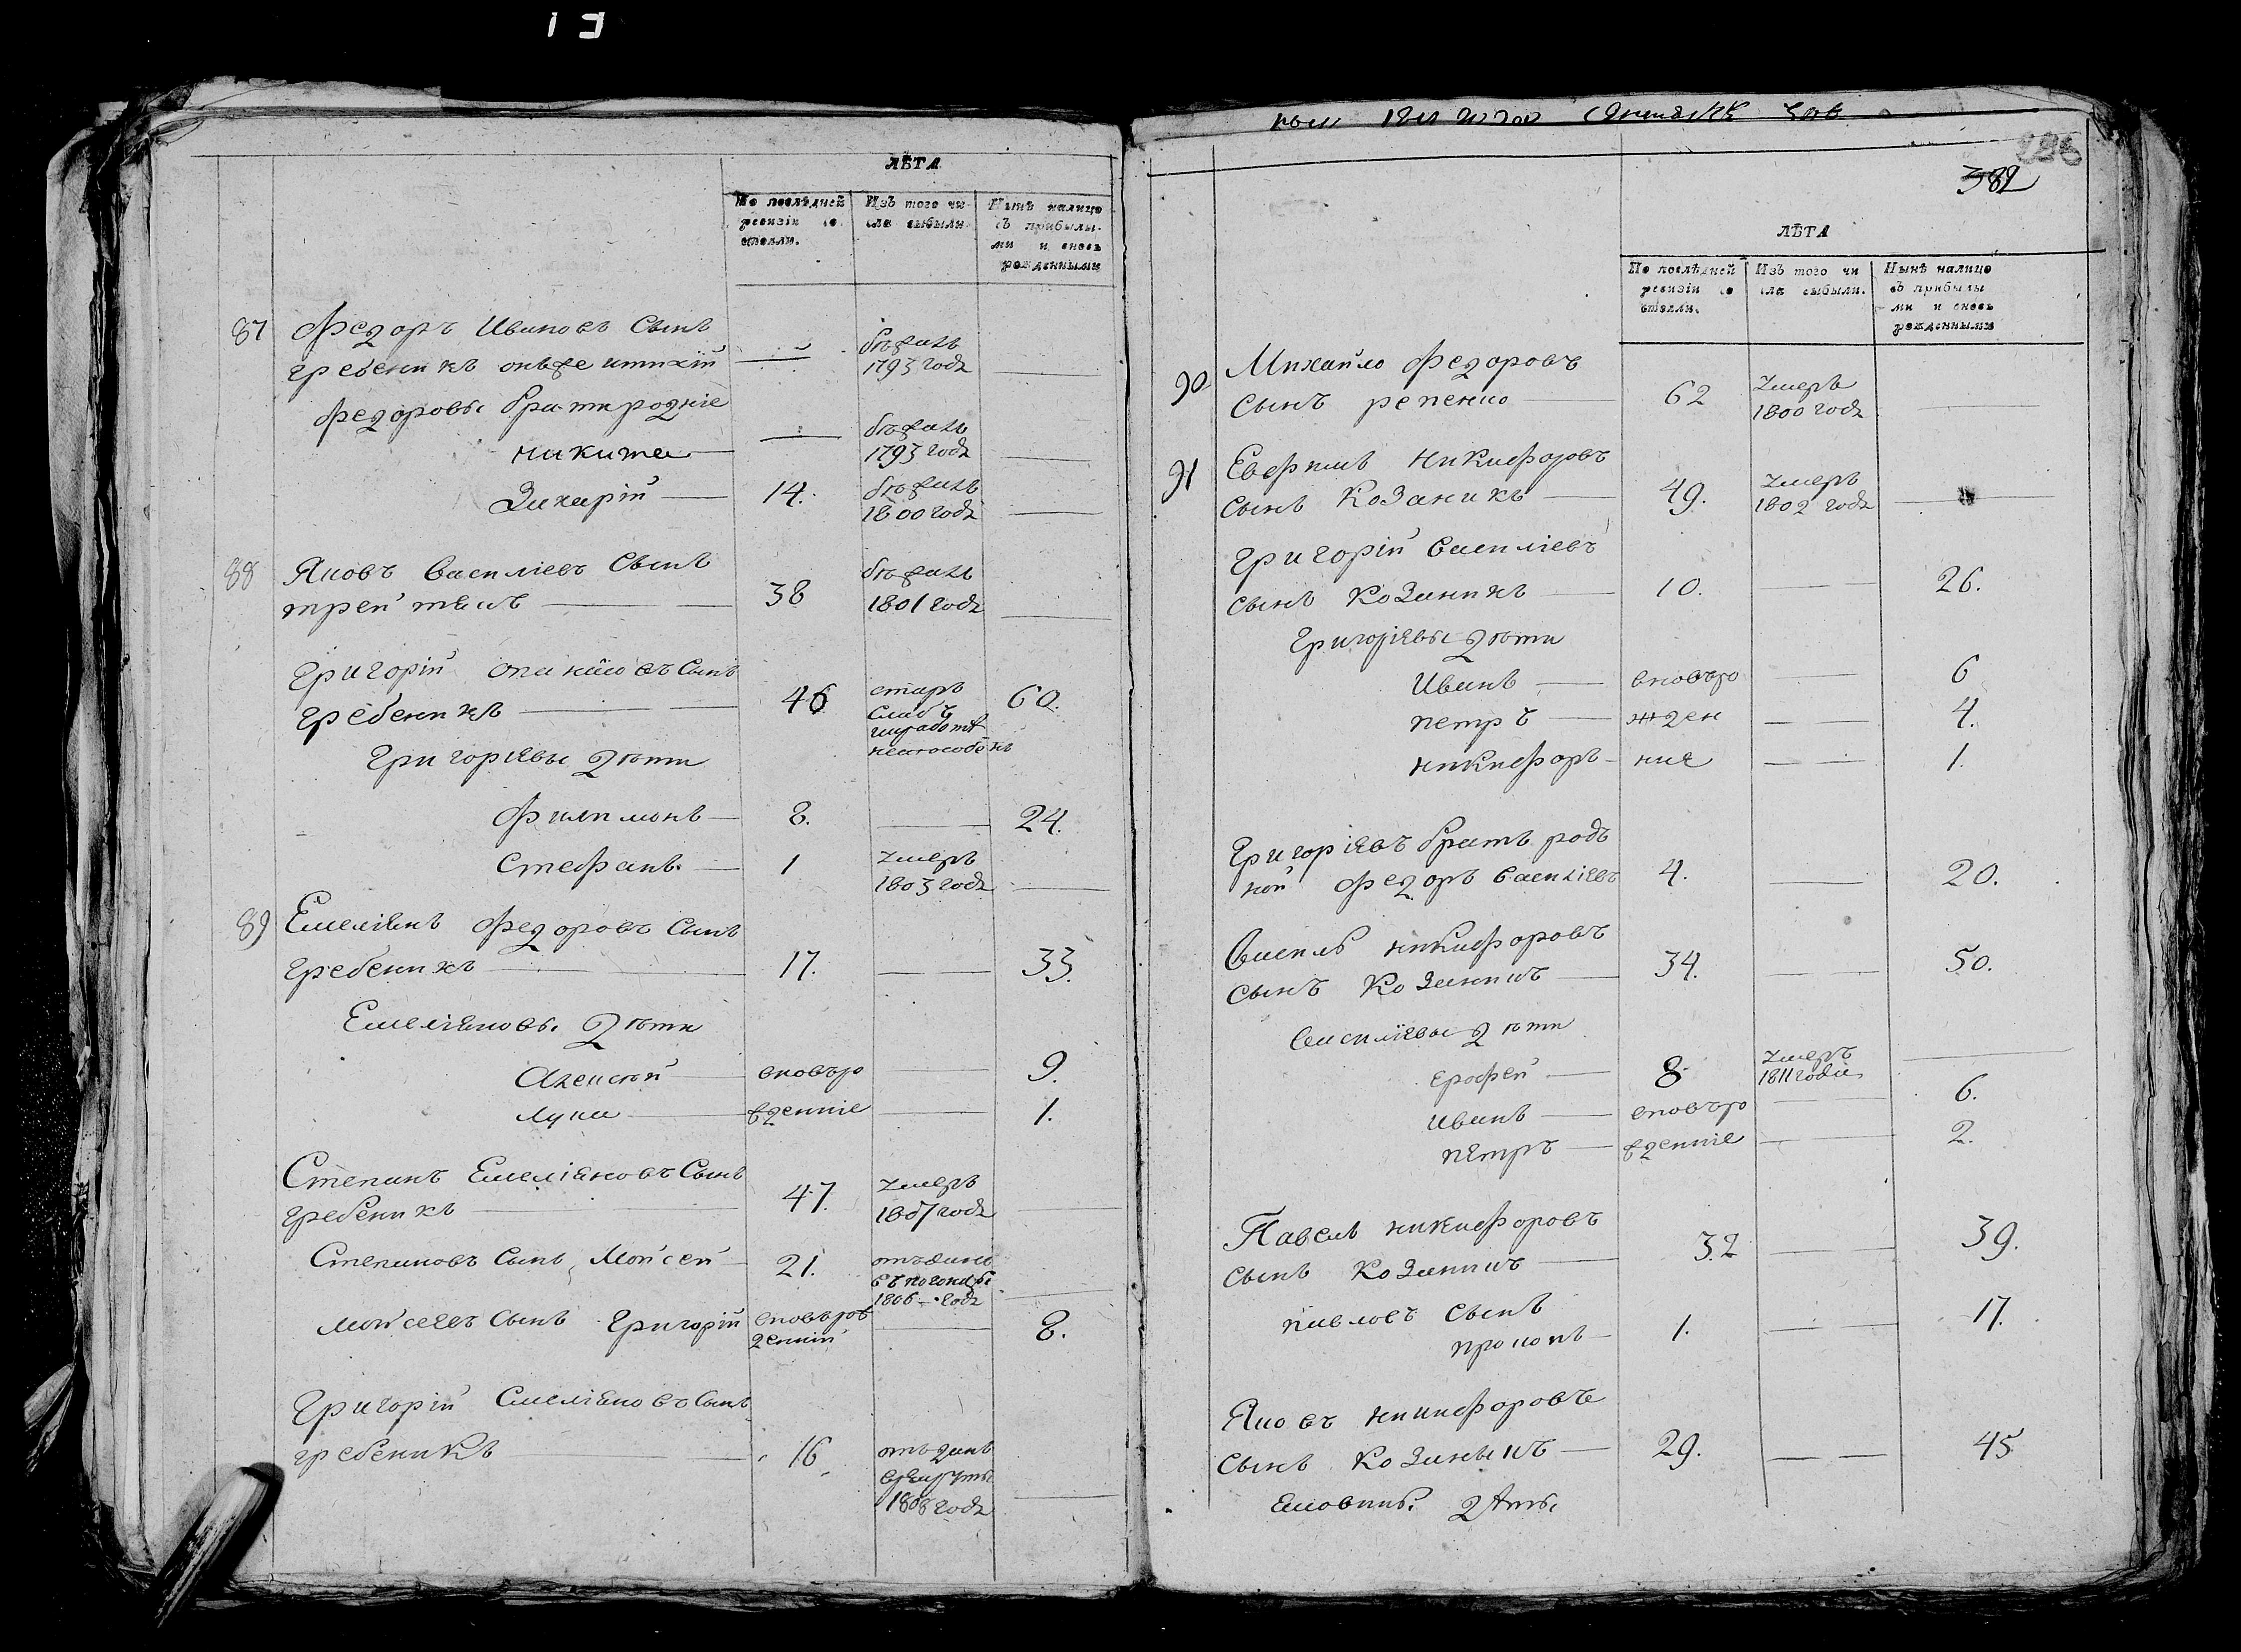 ЛѢТА
По послѣдней ревизіи состояли.
Изъ того числа выбыли
Нынѣ налицо съ прибылыми и вновь рожденными
87 Федоръ Ивановъ Сынъ
гребеникъ онъже
— бѣжалъ 1793 года —
Федоровы братиродніе
Никита — бѣжалъ 1793 года —
Захарій — 14. бѣжалъ 1800 года —
88 Яковъ Василіевъ Сынъ
38 бѣжалъ 1801 года —
Григорій Сынъ
гребеникъ — 46 старъ слабъ неспособенъ 60.
Григоріевы дѣти
Филимонъ — 8. — 24.
Стефанъ — 1 умеръ 1803 года —
89 Емеліянъ Федоровъ Сынъ
гребеникъ — 17. — 33.
Емеліяновы дѣти
Алексѣй — вновъро — 9.
Лука — жденніе — 1.
Степанъ Емеліяновъ Сынъ
гребеникъ — 47. умеръ 1807 года —
Степановъ Сынъ Мойсей 21. отъданъ 1806 года —
Мойсеевъ Сынъ Григорій вновърож
денній — 8.
Григорій Емеліяновъ Сынъ
гребеникъ — 16 отъданъ
врекруты
1808 года —
382
ЛѢТА
По послѣдней ревизіи состояли.
Изъ того числа выбыли.
Нынѣ налицо съ прибылыми и вновь рожденными
90 Михайло Федоровъ
Сынъ репенко — 62 умеръ 1800 года —
91 Евфимъ Никифоровъ
Сынъ Козаникъ — 49. умеръ 1802 года —
Григорій Василіевъ
Сынъ Козаникъ — 10. — 26.
Григоріевы дѣти
Иванъ — вновъро — 6
Петръ — жден — 4.
Никифоръ — ние — 1.
Григоріевъ братъ род
ной Федоръ Василіевъ 4. — 20.
Василь Никифоровъ
Сынъ Козаникъ — 34. — 50.
Василіевы дѣти
Ерофей — 8. умеръ 1811 года —
Иванъ — вновъро — 6.
Петръ — жденніе — 2.
Павелъ Никифоровъ
Сынъ Козаникъ — 32 — 39.
Павловъ Сынъ
Прокопъ — 1. — 17.
Яковъ Никифоровъ
Сынъ Козаныкъ — 29. — 45
Яковливы дѣты